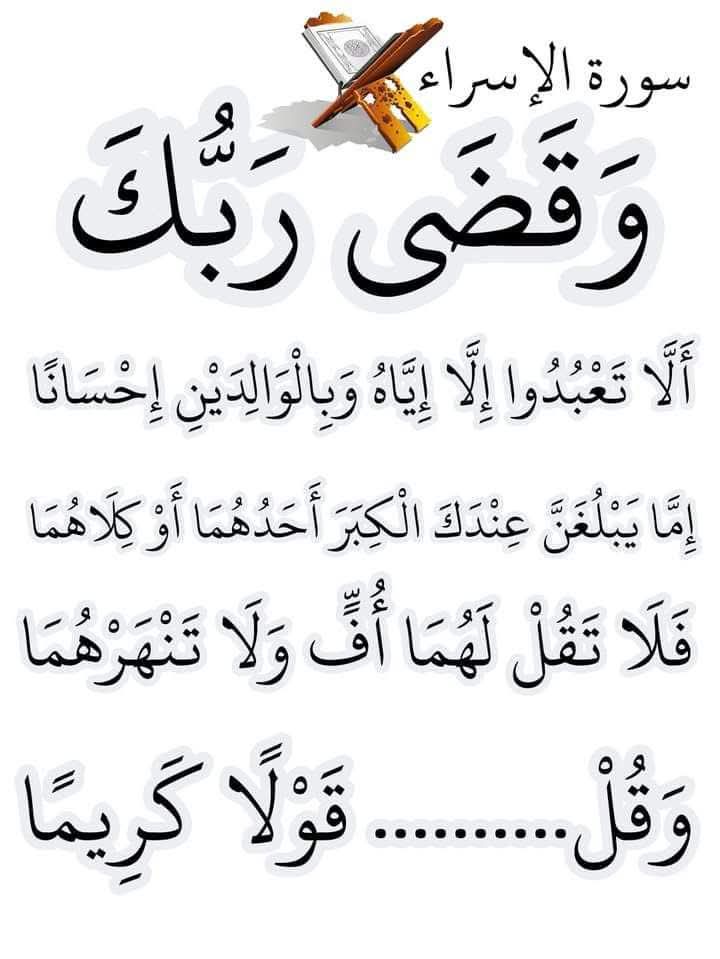 سورة الإسراء
وَقَضَى رَبُّكَ
أَلَّا تَعْبُدُوا إِلَّا إِيَّاهُ وَبِالْوَالِدَيْنِ إِحْسَانًا
إِمَّا يَبْلُغَنَّ عِنْدَكَ الْكِبَرَ أَحَدُهُمَا أَوْ كِلَاهُمَا
فَلَا تَقُلْ لَهُمَا أُفٍّ وَلَا تَنْهَرْهُمَا
وَقُلْ.......... قَوْلًا كَرِيمًا